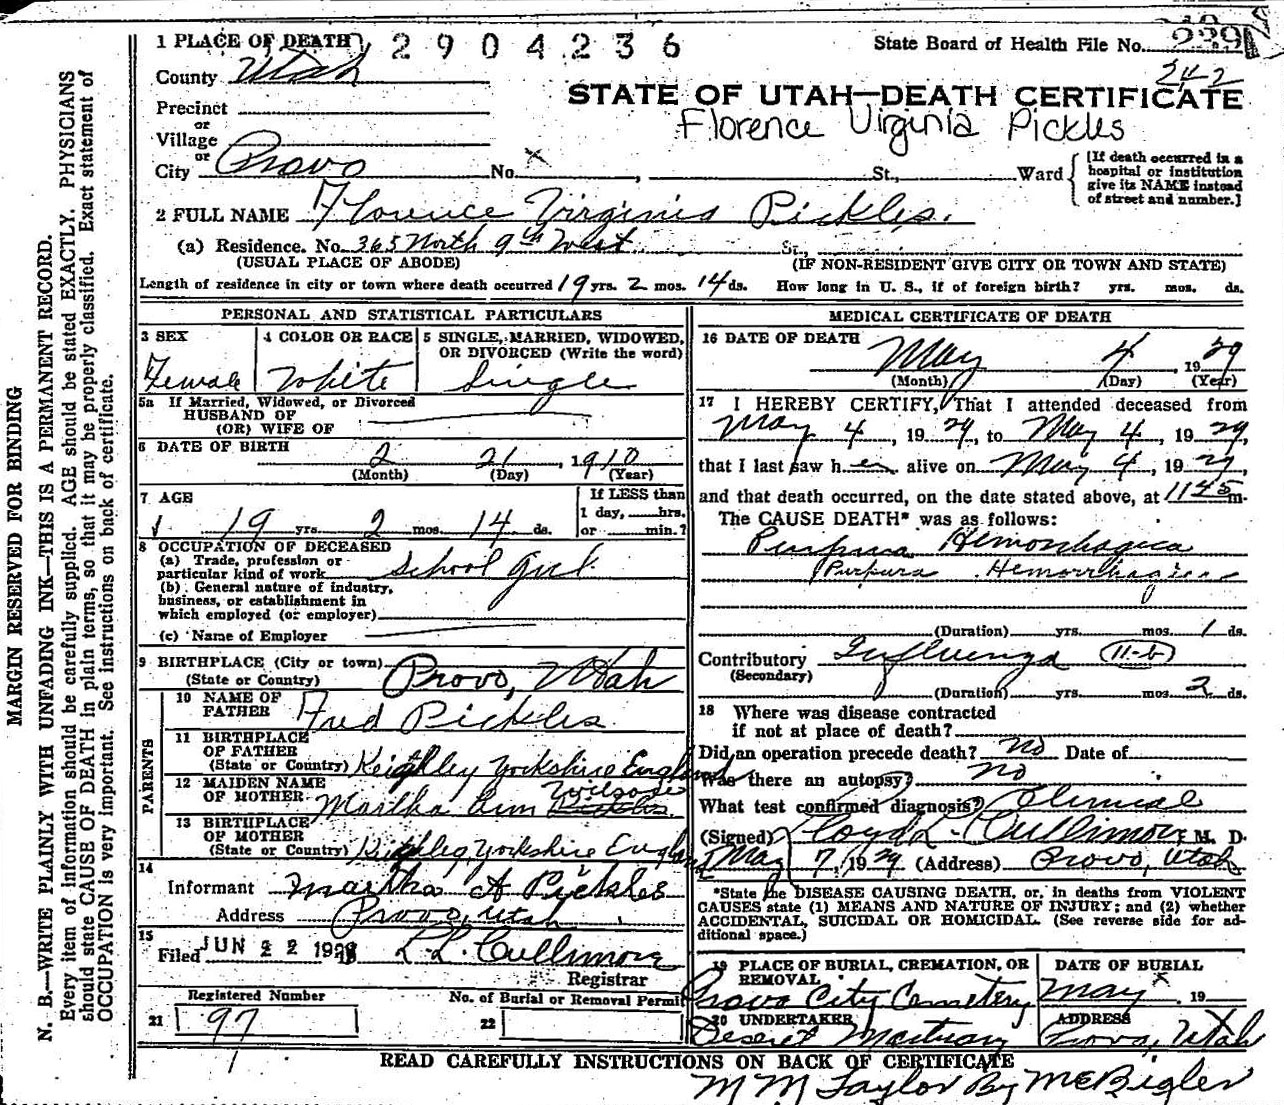 1 PLACE OF DEATH 2904236 State Board of Health File No. 239
242
County Utah
STATE OF UTAH—DEATH CERTIFICATE
Precinct
Florence Virginia Pickles
or
Village
or
City Provo No. x , St., Ward
[If death occurred in a
hospital or institution
give its NAME instead
of street and number.]
2 FULL NAME Florence Virginia Pickles.
(a) Residence. No. 365 North 9th West St.,
(USUAL PLACE OF ABODE) (IF NON-RESIDENT GIVE CITY OR TOWN AND STATE)
Length of residence in city or town where death occurred 19 yrs. 2 mos. 14 ds. How long in U. S., if of foreign birth? yrs. mos. ds.
PERSONAL AND STATISTICAL PARTICULARS
3 SEX
Female
4 COLOR OR RACE
White
5 SINGLE, MARRIED, WIDOWED,
OR DIVORCED (Write the word)
Single
5a If Married, Widowed, or Divorced
HUSBAND OF
(OR) WIFE OF
6 DATE OF BIRTH
2 21, 1910
(Month) (Day) (Year)
7 AGE
19 yrs. 2 mos. 14 ds.
If LESS than
1 day, hrs.
or min.?
8 OCCUPATION OF DECEASED
(a) Trade, profession or
particular kind of work School Girl
(b) General nature of industry,
business, or establishment in
which employed (or employer)
(c) Name of Employer
9 BIRTHPLACE (City or town) Provo, Utah
(State or Country)
PARENTS
10 NAME OF
FATHER Fred Pickles
11 BIRTHPLACE
OF FATHER
(State or Country) Keighley Yorkshire England
12 MAIDEN NAME
OF MOTHER Martha Ann Pickles Wilson
13 BIRTHPLACE
OF MOTHER
(State or Country) Keighley, Yorkshire England
14
Informant Martha A Pickles
Address Provo, Utah
15
Filed JUN 22 192 L L Cullimore
Registrar
Registered Number
21 97
No. of Burial or Removal Permit
22
MEDICAL CERTIFICATE OF DEATH
16 DATE OF DEATH
May 4, 1929
(Month) (Day) (Year)
17 I HEREBY CERTIFY, That I attended deceased from
May 4, 1929, to May 4, 1929,
that I last saw her alive on May 4, 1929,
and that death occurred, on the date stated above, at 1145 m.
The CAUSE DEATH* was as follows:
Purpura Hemorrhagica
Purpura Hemorrhagica
(Duration) yrs. mos. 1 ds.
Contributory Influenza 11-b
(Secondary)
(Duration) yrs. mos. 2 ds.
18 Where was disease contracted
if not at place of death?
Did an operation precede death? no Date of
Was there an autopsy? no
What test confirmed diagnosis? Clinical
(Signed) Lloyd L. Cullimore, M. D.
May 7, 1929 (Address) Provo, Utah
*State the DISEASE CAUSING DEATH, or, in deaths from VIOLENT
CAUSES state (1) MEANS AND NATURE OF INJURY; and (2) whether
ACCIDENTAL, SUICIDAL OR HOMICIDAL. (See reverse side for ad-
ditional space.)
19 PLACE OF BURIAL, CREMATION, OR
REMOVAL
Provo City Cemetery
DATE OF BURIAL
May x, 19
20 UNDERTAKER
Deseret Mortuary
ADDRESS
Provo, Utah
READ CAREFULLY INSTRUCTIONS ON BACK OF CERTIFICATE
M M Taylor By M E Bigler
MARGIN RESERVED FOR BINDING
N. B.—WRITE PLAINLY WITH UNFADING INK—THIS IS A PERMANENT RECORD.
Every item of information should be carefully supplied. AGE should be stated EXACTLY. PHYSICIANS
should state CAUSE OF DEATH in plain terms, so that it may be properly classified. Exact statement of
OCCUPATION is very important. See instructions on back of certificate.